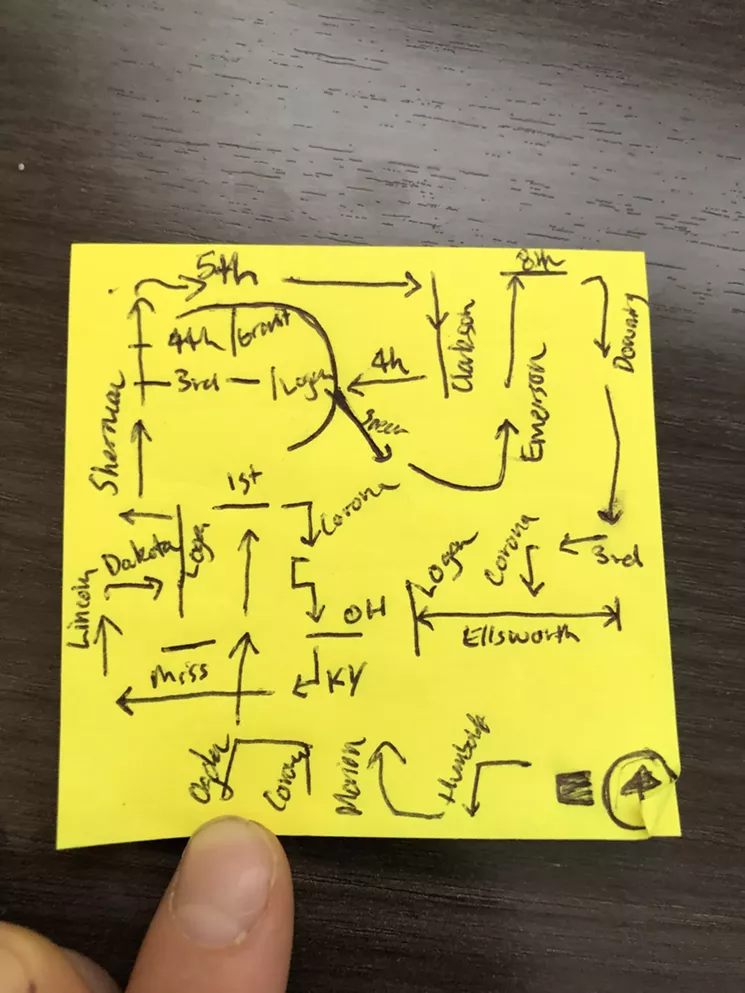 5th
8th
4th Grant
Clarkson
Downing
3rd Logan
4h
Sherman
Speer
Emerson
1st
Corona
Dakota
Logan
Logan
Corona
3rd
Lincoln
OH
Ellsworth
Miss
KY
Ogden
Corona
Marion